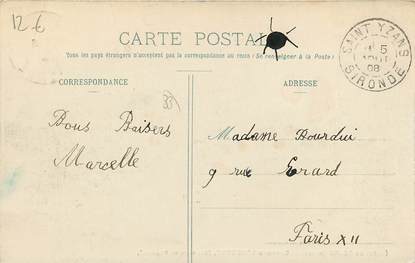 12 €
CARTE POSTALE
Tous les pays étrangers n'acceptent pas la correspondance au recto (Se renseigner à la Poste)
CORRESPONDANCE
ADRESSE
SAINT-YZANS
5
08
GIRONDE
33
Bons Baisers
Marcelle
Madame Bourdin
9 rue Erard
Paris XII